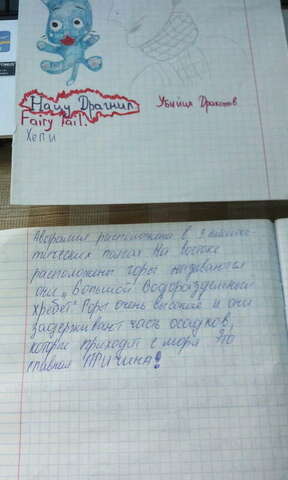 Нацу Драгнил
Убийца Драконов
Fairy Tail.
Хепи
Австралия расположена в 3 климатических
тических поясах На востоке
расположены горы называются
они „Большой Водораздельный
хребет" Горы очень высокие и они
задерживают часть осадков,
которые приходят с моря Это
главная ПРИЧИНА!